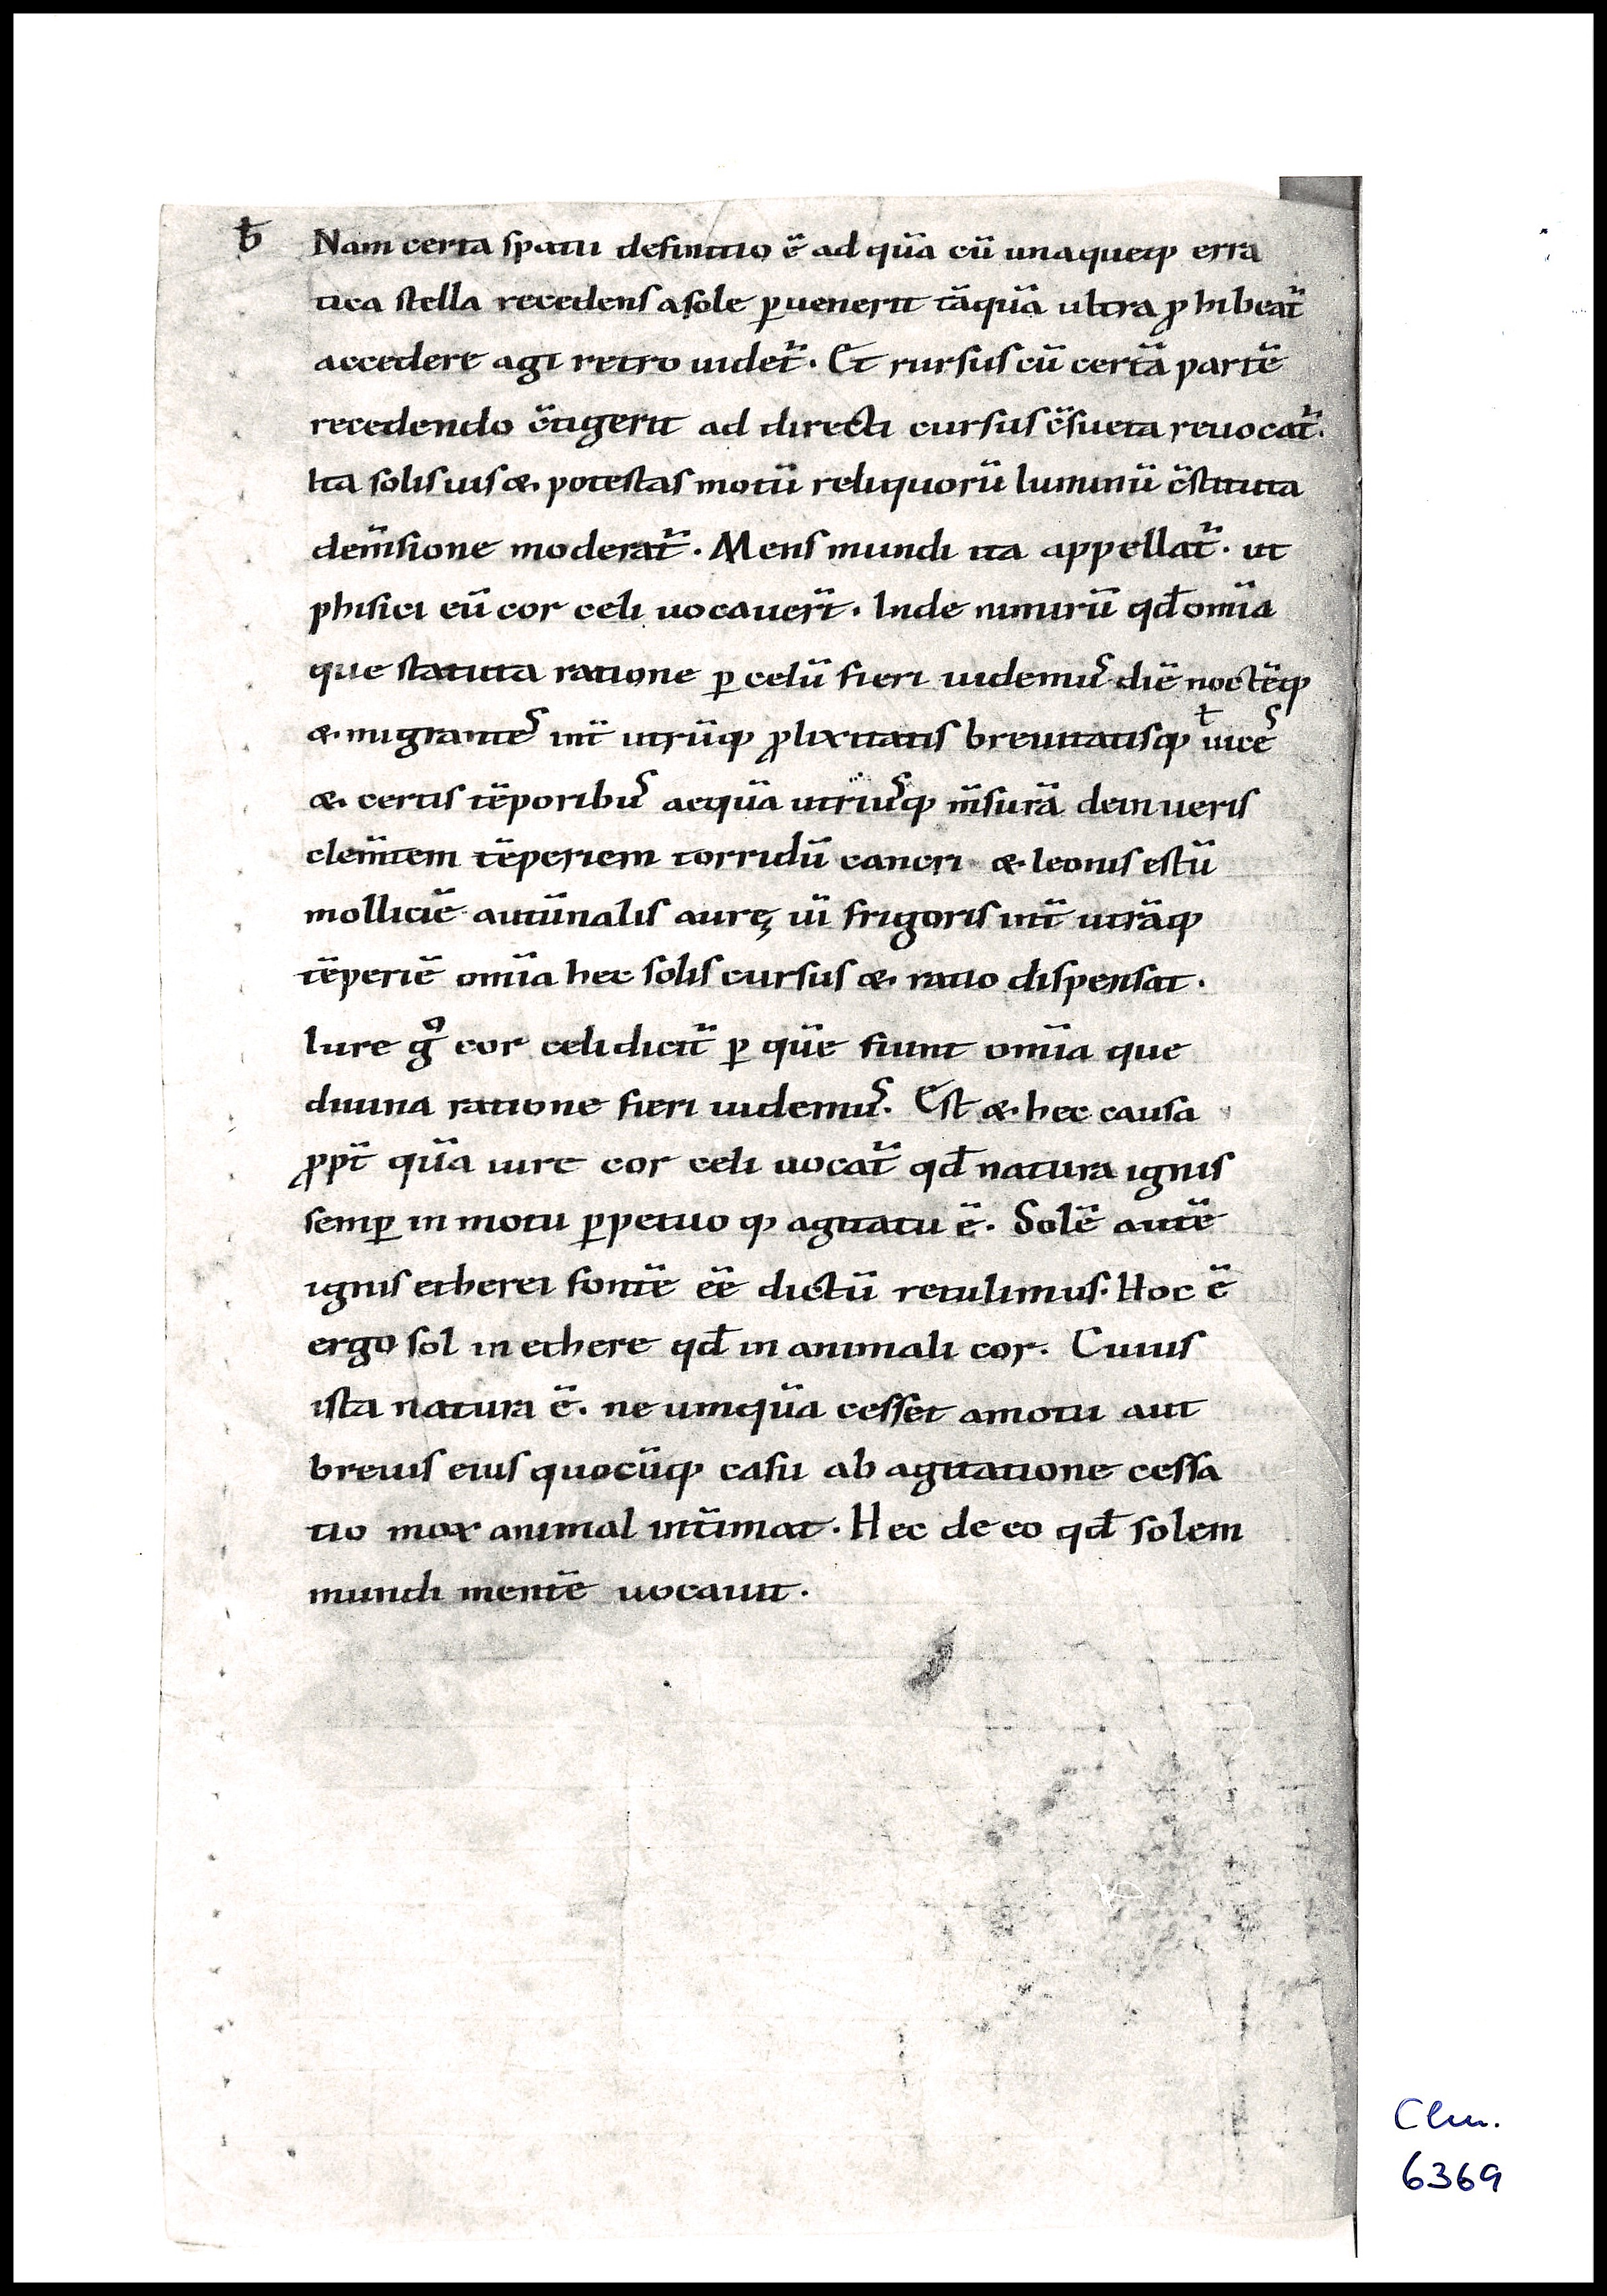 ƀ Nam certa spatii definitio ē ad quā cū unaqueqꝫ erra
tica stella recedens a sole ꝑuenerit tāquā ultra ꝓhibeat᷑
accedere agi retro uidet᷑. Et rursus cū certā partē
recedendo c̄tigerit ad directi cursus c̄sueta reuocat᷑.
Ita solis uis &. potestas motū reliquorū luminū c̄stituta
dem̄sione moderat᷑. Mens mundi ita appellat᷑. ut
phisici eū cor celi uocauer̄t. Inde nimirū qđ om̄ia
que statuta ratione ꝑ celū fieri uidemuˢ diē noctēqꝫ
&. migranteˢ int̄ utrūqꝫ ꝓlixitatis breuitatisqꝫ ƚ uiceˢ
&. certis tēporibuˢ aequā utriuˢqꝫ m̄surā dein ueris
clem̄tem tēperiem torridū cancri &. leonis estū
molliciē autūnalis aurę uī frigoris int̄ utrāqꝫ
tēperiē om̄ia hec solis cursus &. ratio dispensat.
Iure gͦ cor celi dicit᷑ ꝑ quē fiunt om̄ia que
diuina ratione fieri uidemuˢ. Est &. hec causa
ꝓpt̄ quā iure cor celi uocat᷑ qđ natura ignis
semꝑ in motu ꝑpetuo qꝫ agitatu ē. Solē autē
ignis etherei fontē eē dictū retulimus. Hoc ē
ergo sol in ethere qđ in animali cor. Cuius
ista natura ē. ne umquā cesset a motu aut
breuis eius quocūqꝫ casu ab agitatione cessa
tio mox animal int̄imat. Hec de eo qđ solem
mundi mentē uocauit.
Clm.
6369